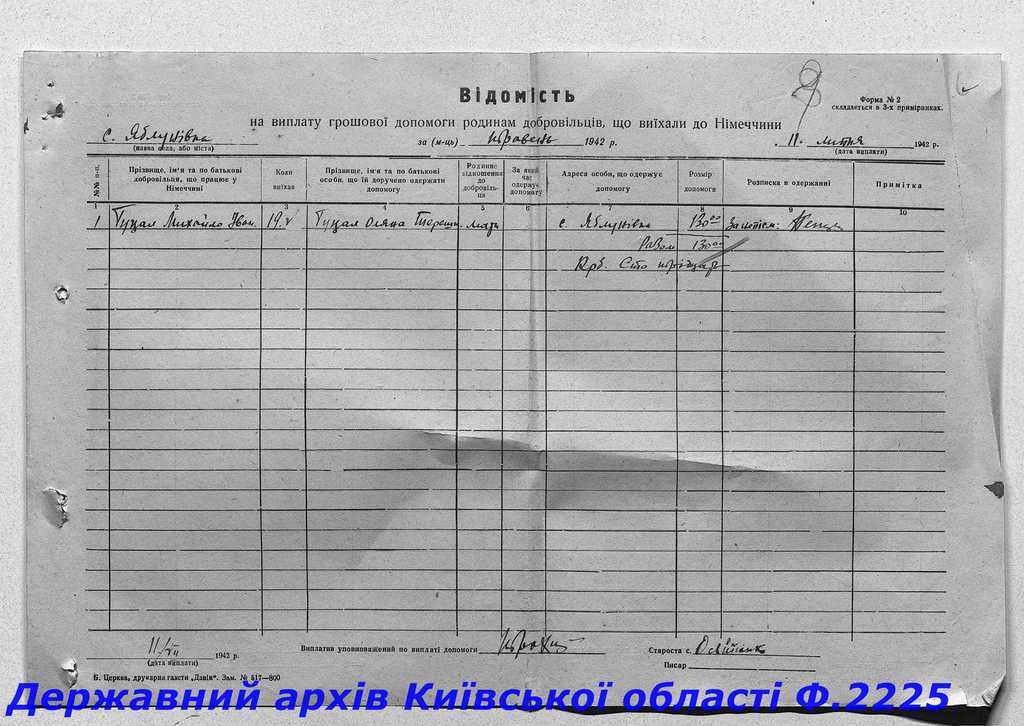 Відомість
Форма № 2
складається в 3-х примірниках.
на виплату грошової допомоги родинам добровільців, що виїхали до Німеччини
с. Яблунівка
(назва села, або міста)
за (м-ць) травень 1942 р.
11 липня 1942 р.
(дата виплати)
№№ п-п.
Прізвище, ім'я та по батькові добровільця, що працює у Німеччині
Коли виїхав
Прізвище, ім'я та по батькові особи, що їй доручено одержати допомогу
Родинне відношення до добровільця
За який час одержує допомогу
Адреса особи, що одержує допомогу
Розмір допомоги
Розписка в одержанні
Примітка
1 2 3 4 5 6 7 8 9 10
1 Гуцал Михайло Іван. 19.V Гуцал Оляна Терешк. мати с. Яблунівка 130 00
Разом 130 00
Крб. Сто тридцять
11/VII 1942 р.
(дата виплати)
Виплатив уповноважений по виплаті допомоги
Староста с.
Писар
Б. Церква, друкарня газети „Дзвін". Зам. № 517—800
Державний архів Київської області Ф.2225